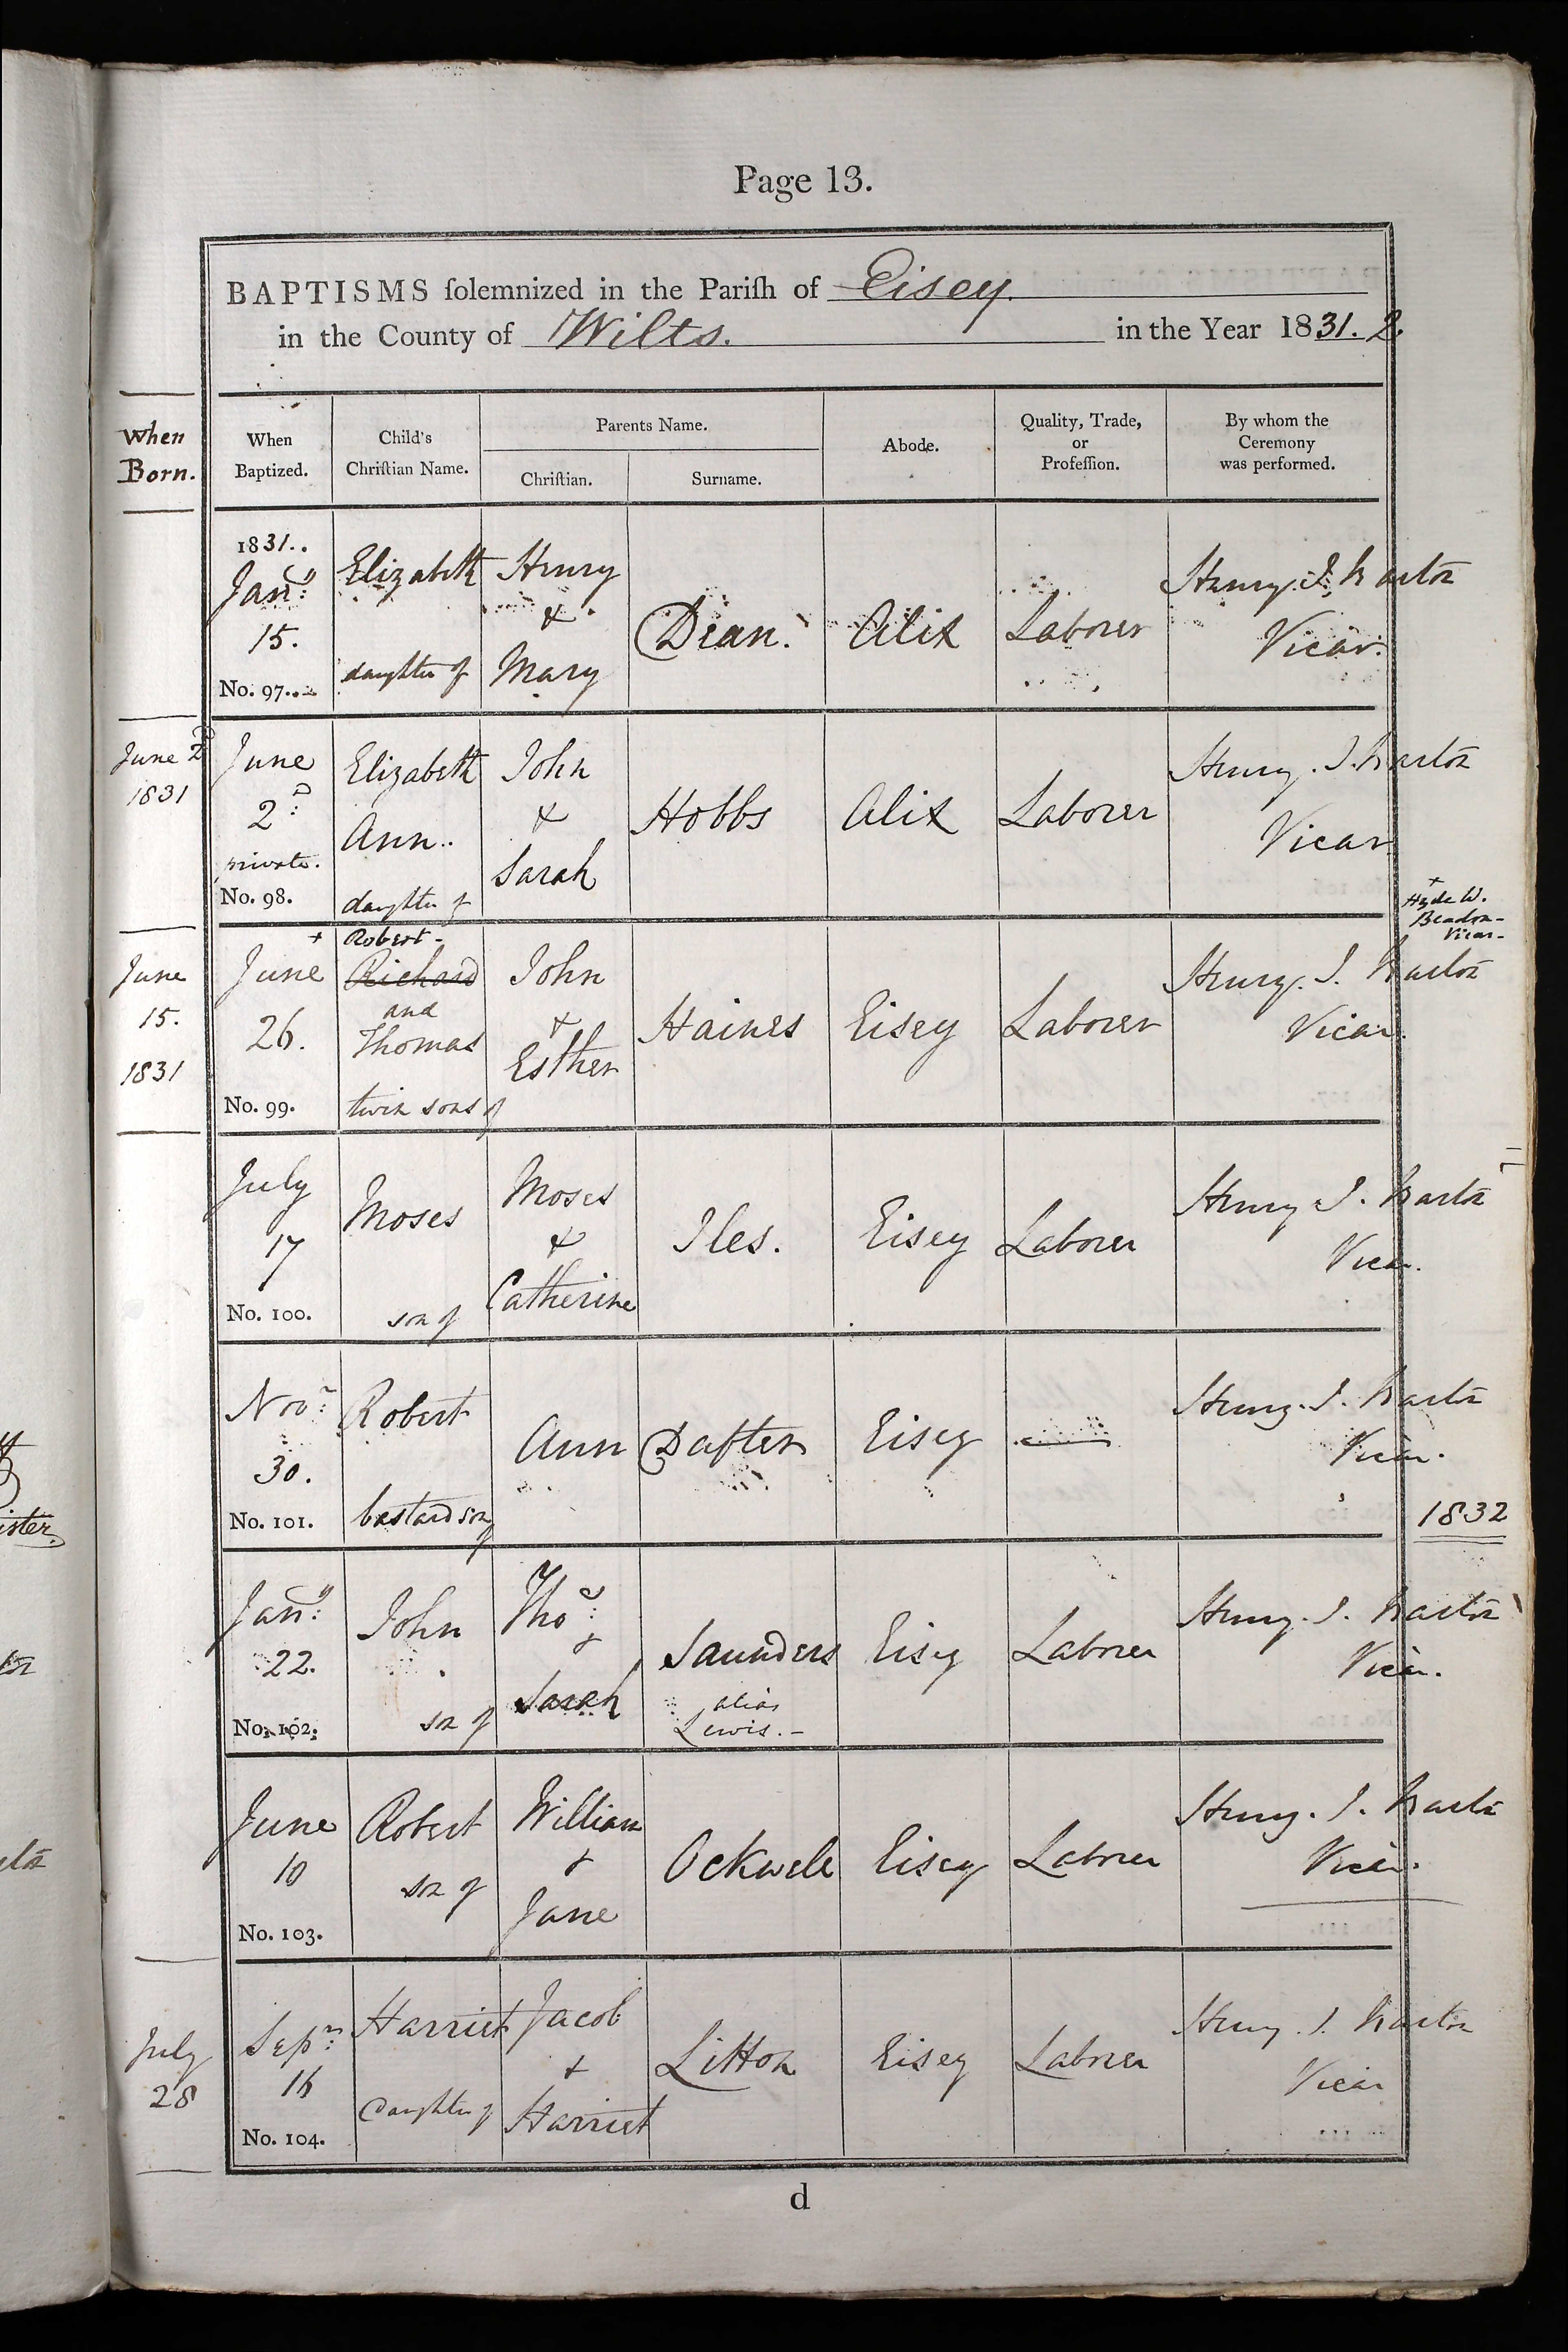 Page 13.
BAPTISMS ſolemnized in the Pariſh of Eisey.
in the County of Wilts. in the Year 1831. 2.
When
Born.
When
Baptized.
Child's
Chriſtian Name.
Parents Name.
Chriſtian.
Surname.
Abode.
Quality, Trade,
or
Profeſſion.
By whom the
Ceremony
was performed.
1831..
Jany:
15.
No. 97.
Elizabeth
daughter of
Henry
&
Mary
Dean.
Laborer
Henry. J.
Vicar.
June 2d
1831
June
2d:
private.
No. 98.
Elizabeth
Ann..
daughter of
John
&
Sarah
Hobbs
Laborer
Henry. J.
Vicar
June
15.
1831
+
June
26.
No. 99.
Robert-
Richard
and
Thomas
twin sons of
John
&
Esther
Haines
Eisey
Laborer
Henry. J.
Vicar.
+
Hyde W.
Beadon-
Vicar-
July
17
No. 100.
Moses
son of
Moses
&
Catherine
Iles.
Eisey
Laborer
Henry J.
Vicar.
Novr:
30.
No. 101.
Robert
bastard son
of
Ann
Dafter
Eisey
Henry. J.
Vicar.
1832
Jany:
22.
No. 102.
John
son of
Thos:
&
Sarah
Saunders
alias
Lewis.-
Eisey
Laborer
Henry. J.
Vicar.
June
10
No. 103.
Robert
son of
William
&
Jane
Ockwell
Eisey
Laborer
Henry. J.
Vicar.
July
28
Sepr:
16
No. 104.
Harriet
Daughter of
Jacob
+
Harriet
Litton
Eisey
Laborer
Henry. J.
Vicar
d